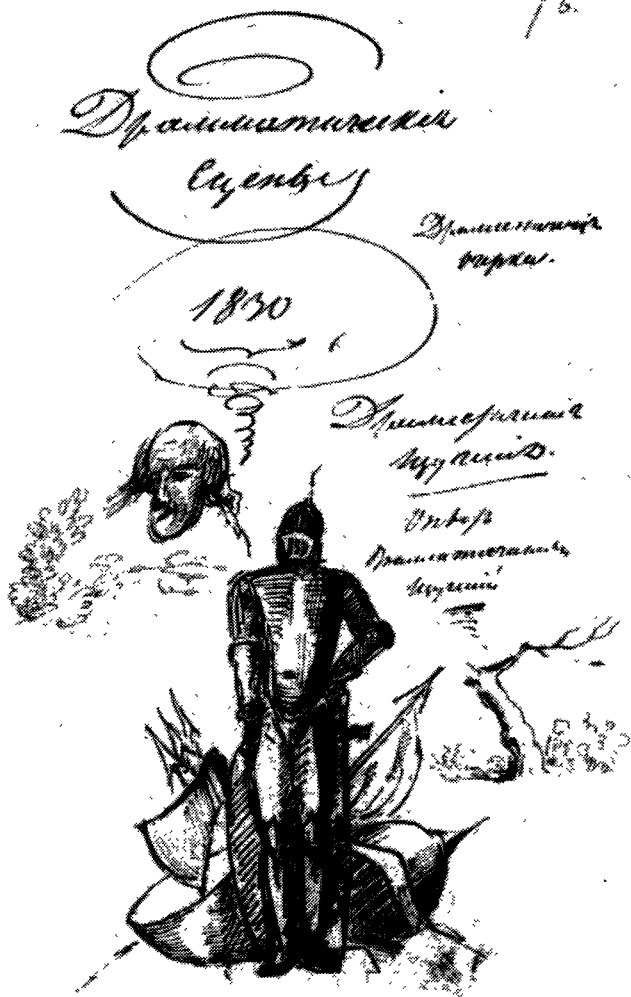 Драмматическія
Сцены
Драмматическіе
очерки.
1830
Драмматическія
Изученія.
Опытъ
Драмматическихъ
Изученій